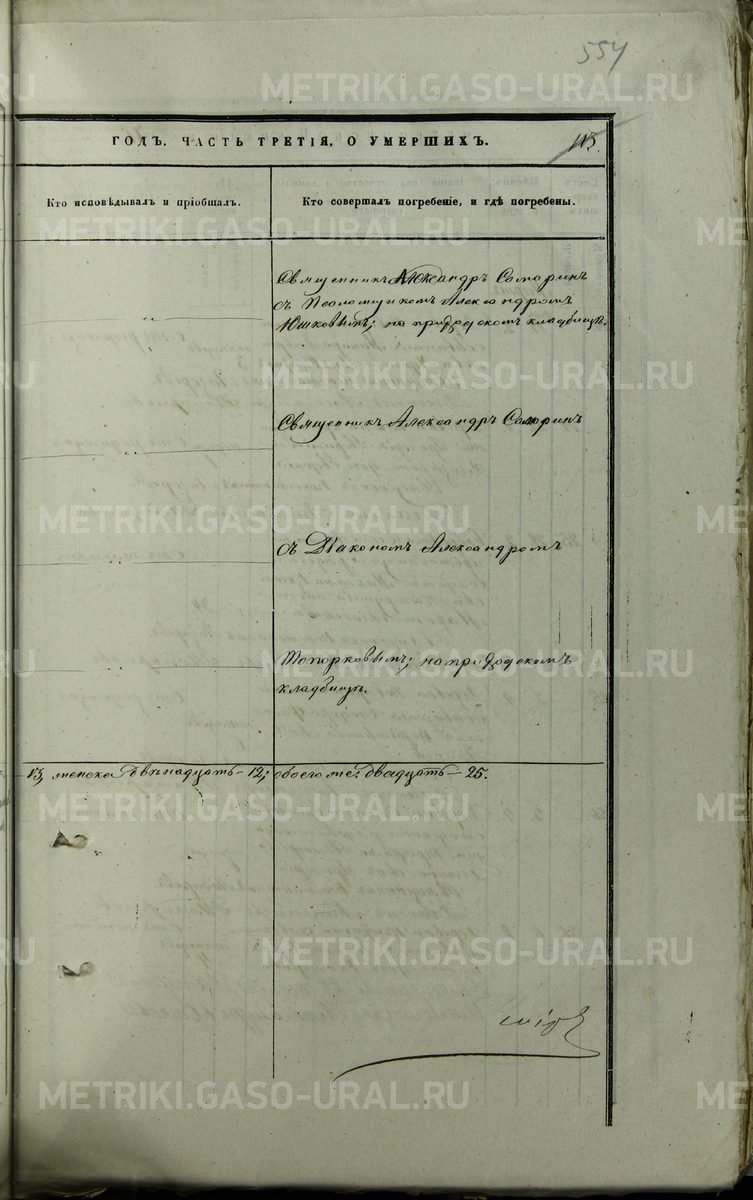 554
ГОДЪ. ЧАСТЬ ТРЕТІЯ, О УМЕРШИХЪ.
113.
Кто исповѣдывалъ и пріобщалъ.
Кто совершалъ погребеніе, и гдѣ погребены.
Священникъ Александръ Самаринъ
съ Псаломщикомъ Александромъ
Юшковымъ; на приходскомъ кладбищѣ.
Священникъ Александръ Самаринъ
съ Діакономъ Александромъ
Топорковымъ; на приходскомъ
кладбищѣ.
13, женска двѣнадцать – 12; обоего двадцать – 25.
METRIKI.GASO-URAL.RU